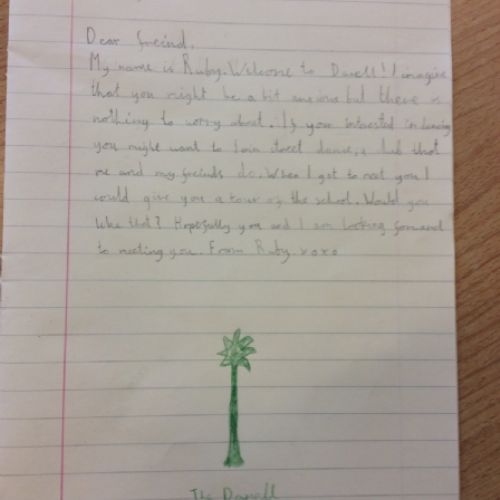 Dear freind,
My name is Ruby. Welcome to Duvell! I imagine
that you might be a bit anxious but there is
nothing to worry about. If your intrested in dancing
you might want to join street dance, a club that
me and my freinds do. When I get to meet you I
could give you a tour of the school. Would you
like that? Hopefully you and I am looking forward
to meeting you. From Ruby. xoxo
The